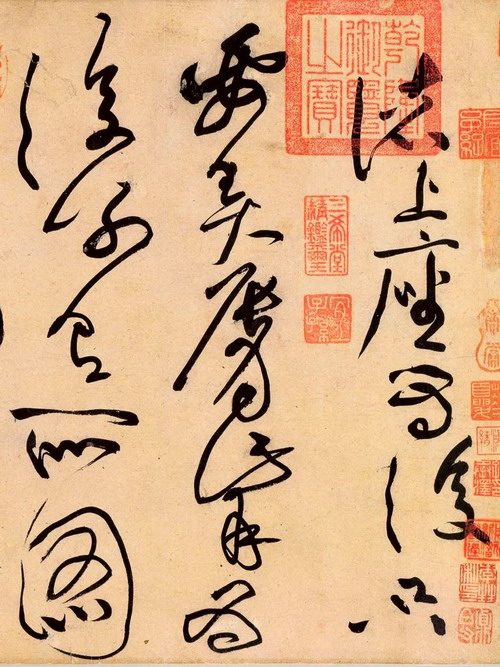 諸上座為復只
要弄脣觜為
復別有所圖
乾隆御覽之寶
三希堂精鑑璽
宜子孫